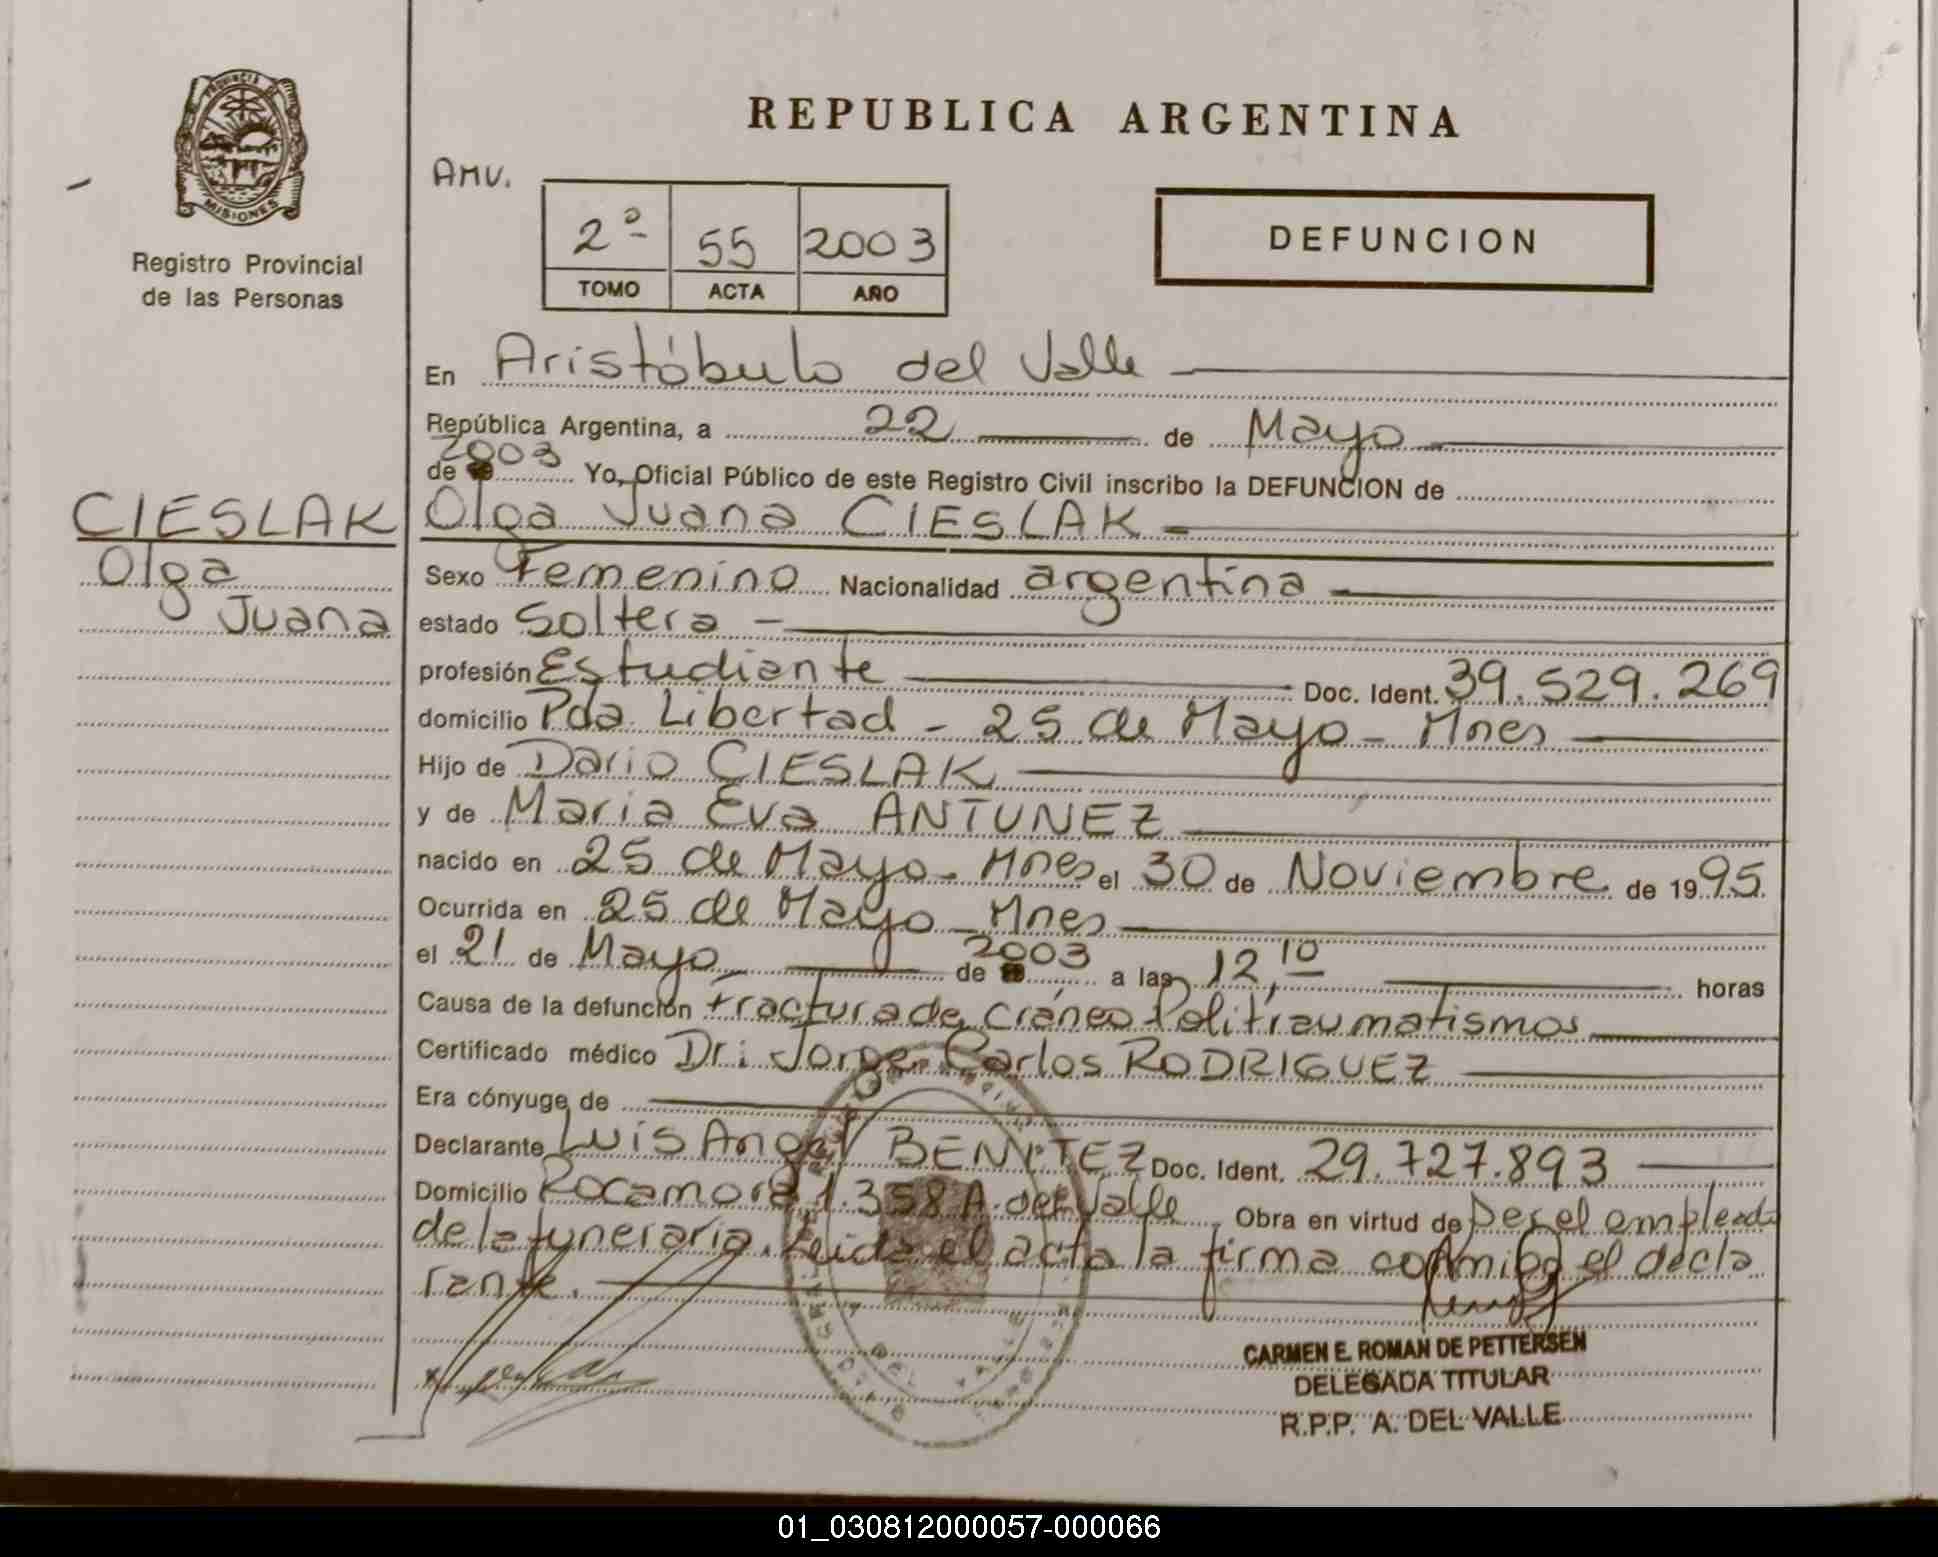 PROVINCIA DE
MISIONES
Registro Provincial
de las Personas
REPUBLICA ARGENTINA
AMV.
2º 55 2003
TOMO ACTA AÑO
DEFUNCION
En Aristóbulo del Valle
República Argentina, a 22 de Mayo
de 2003 Yo, Oficial Público de este Registro Civil inscribo la DEFUNCION de
CIESLAK
Olga Juana CIESLAK
Olga
Juana
Sexo Femenino Nacionalidad argentina
estado Soltera
profesión Estudiante Doc. Ident. 39.529.269
domicilio Pda. Libertad - 25 de Mayo - Mnes
Hijo de Dario CIESLAK
y de Maria Eva ANTUNEZ
nacido en 25 de Mayo - Mnes el 30 de Noviembre de 1995.
Ocurrida en 25 de Mayo - Mnes
el 21 de Mayo de 2003 a las 12,10 horas
Causa de la defunción Fractura de cráneo Politraumatismos
Certificado médico Dr: Jorge Carlos RODRIGUEZ
Era cónyuge de
Declarante Luis Angel BENITEZ Doc. Ident. 29.727.893
Domicilio Rocamora 1.358 A. del Valle Obra en virtud de Ser el empleado
de la funeraria. Leida el acta la firma conmigo el decla
rante.
CARMEN E. ROMAN DE PETTERSEN
DELEGADA TITULAR
R.P.P. A. DEL VALLE
01_030812000057-000066